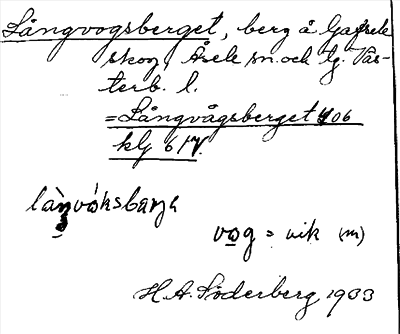 Långvogsberget, berg å Gafsele
skog, Åsele sn. och tg. Väs-
terb. l.
=Långvågsberget 406
klg 617.
vog = vik (m)
H. A. Söderberg 1933